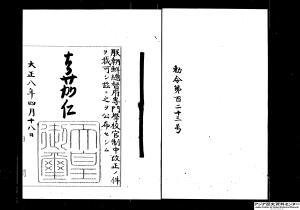 勅令第百二十三号
朕朝鮮總督府專門學校官制中改正ノ件
ヲ裁可シ茲ニ之ヲ公布セシム
嘉仁
天皇
御璽
大正八年四月十八日
アジア歴史資料センター
Japan Center for Asian Historical Records